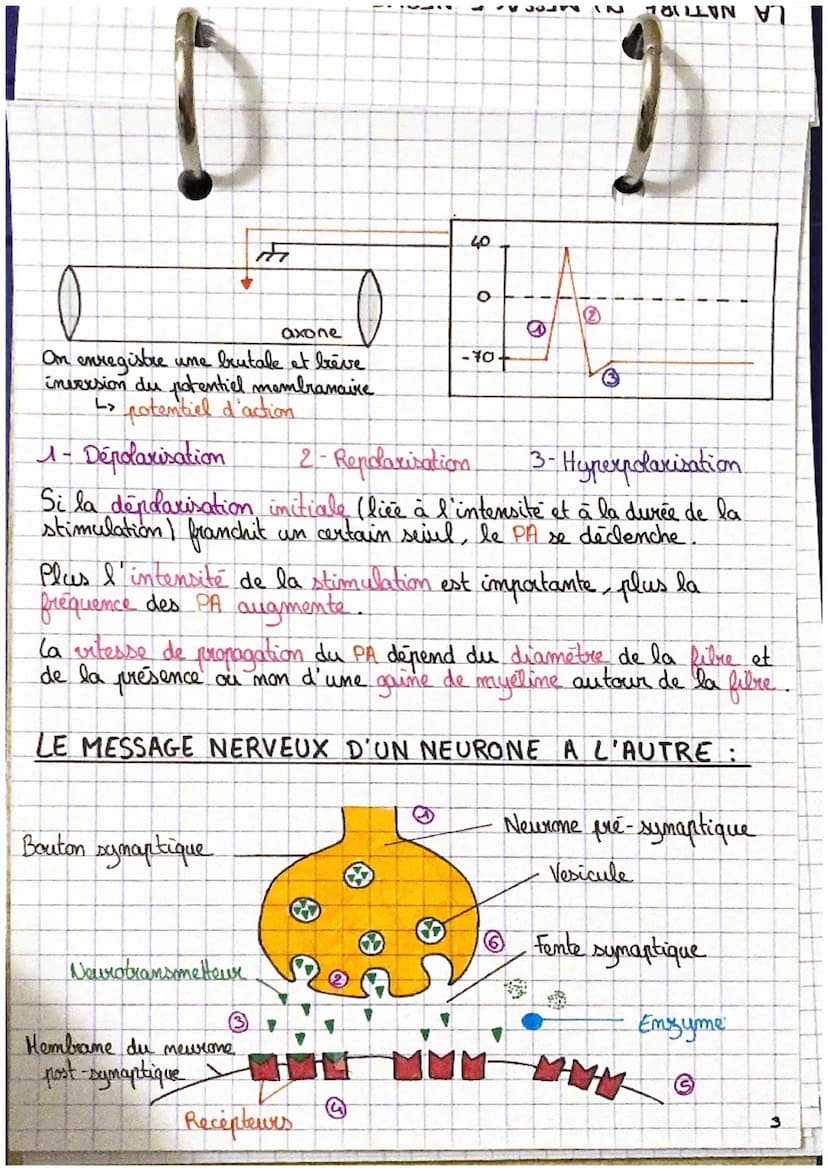 LA NATURE DU MESSAGE
40
0
-70
1
2
3
axone
On enregistre une brutale et brève
inversion du potentiel membranaire
↳ potentiel d'action
1- Dépolarisation 2- Repolarisation 3- Hyperpolarisation
Si la dépolarisation initiale (liée à l'intensité et à la durée de la
stimulation) franchit un certain seuil, le PA se déclenche.
Plus l'intensité de la stimulation est importante, plus la
fréquence des PA augmente.
La vitesse de propagation du PA dépend du diamètre de la fibre et
de la présence ou non d'une gaine de myéline autour de la fibre.
LE MESSAGE NERVEUX D'UN NEURONE A L'AUTRE :
1
Neurone pré-synaptique
Bouton synaptique
Vesicule
6
Fente synaptique
Neurotransmetteur
2
3
Enzyme
Membrane du neurone
post-synaptique
5
4
Recépteurs
3